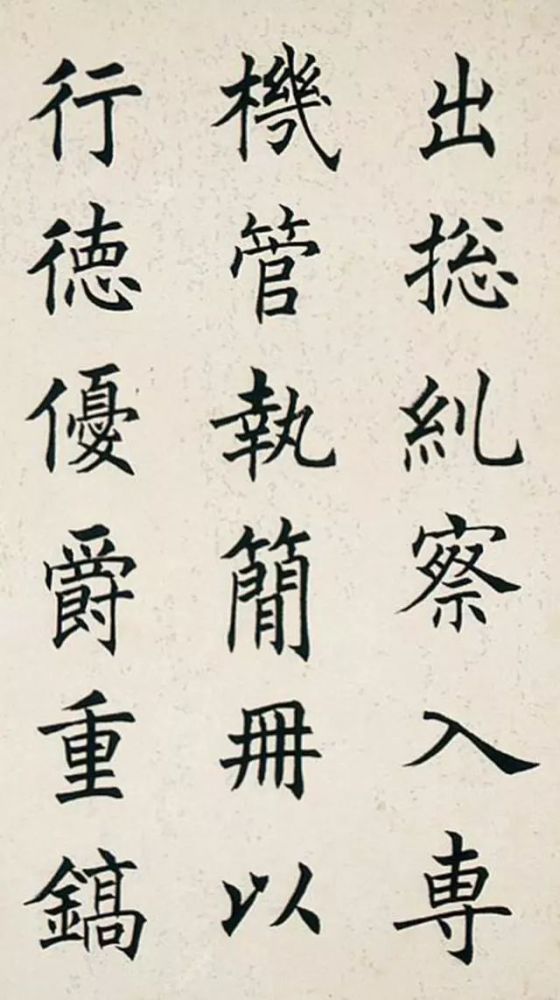 出揔糺察入専
機管執簡冊以
行徳優爵重鎬